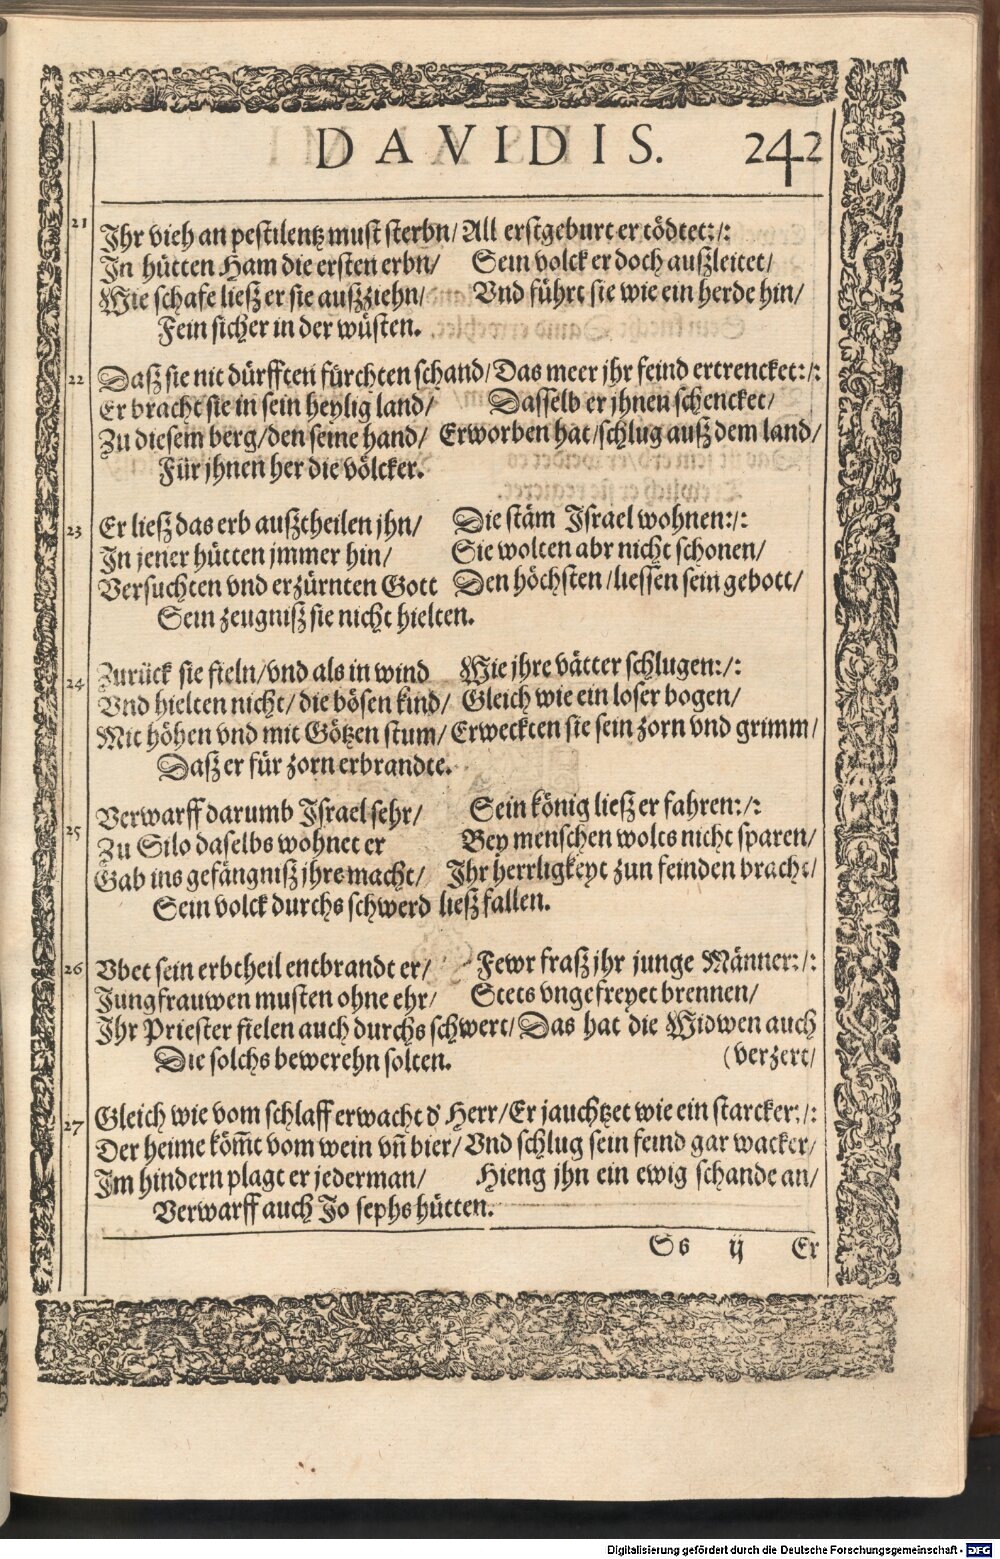 DAVIDIS. 242
21 Ihr vieh an pestilentz must sterbn/ All erstgeburt er tödtet:/:
In hütten Ham die ersten erbn/ Sein volck er doch außleitet/
Wie schafe ließ er sie außziehn/ Vnd führt sie wie ein herde hin/
Fein sicher in der wüsten.
22 Daß sie nit dürfften fürchten schand/ Das meer jhr feind ertrencket:/:
Er bracht sie in sein heylig land/ Dasselb er jhnen schencket/
Zu diesem berg/ den seine hand/ Erworben hat/ schlug auß dem land/
Für jhnen her die völcker.
23 Er ließ das erb außtheilen jhn/ Die stäm Israel wohnen:/:
In jener hütten jmmer hin/ Sie wolten abr nicht schonen/
Versuchten vnd erzürnten Gott Den höchsten/ liessen sein gebott/
Sein zeugniß sie nicht hielten.
24 Zurück sie fieln/ vnd als in wind Wie jhre vätter schlugen:/:
Vnd hielten nicht/ die bösen kind/ Gleich wie ein loser bogen/
Mit höhen vnd mit Götzen stum/ Erweckten sie sein zorn vnd grimm/
Daß er für zorn erbrandte.
25 Verwarff darumb Israel sehr/ Sein könig ließ er fahren:/:
Zu Silo daselbs wohnet er Bey menschen wolts nicht sparen/
Gab ins gefängniß jhre macht/ Ihr herrligkeyt zun feinden bracht/
Sein volck durchs schwerd ließ fallen.
26 Vbet sein erbtheil entbrandt er/ Fewr fraß jhr junge Männer:/:
Jungfrauwen musten ohne ehr/ Stets vngefreyet brennen/
Ihr Priester fielen auch durchs schwert/ Das hat die Widwen auch
Die solchs bewerehn solten. (verzert/
27 Gleich wie vom schlaff erwacht d' Herr/ Er jauchtzet wie ein starcker:/:
Der heime köm̃t vom wein vn̄ bier/ Vnd schlug sein feind gar wacker/
Im hindern plagt er jederman/ Hieng jhn ein ewig schande an/
Verwarff auch Jo sephs hütten.
Ss ij Er
Digitalisierung gefördert durch die Deutsche Forschungsgemeinschaft - DFG